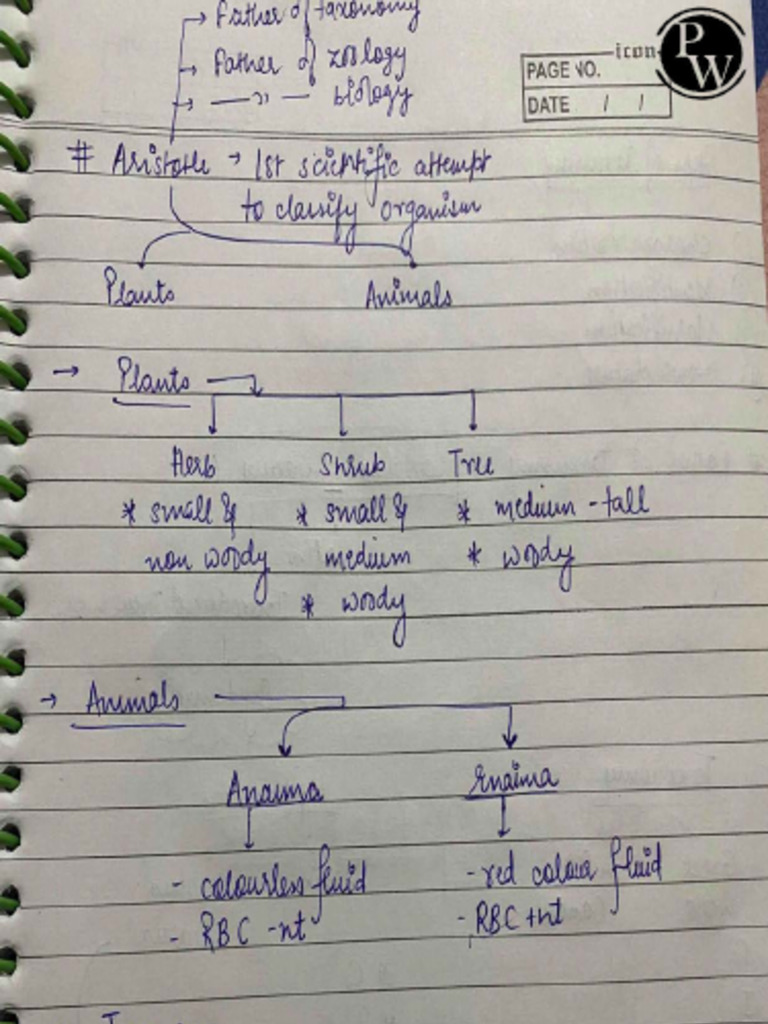 → Father of taxonomy
→ Father of zoology
→ — " — biology
icon
PW
PAGE NO.
DATE / /
# Aristotle → 1st scientific attempt
to classify organism
Plants Animals
→ Plants
Herb Shrub Tree
* small & * small & * medium - tall
non woody medium * woody
* woody
→ Animals
Anaima Enaima
- colourless fluid - red colour fluid
- RBC -nt - RBC +nt